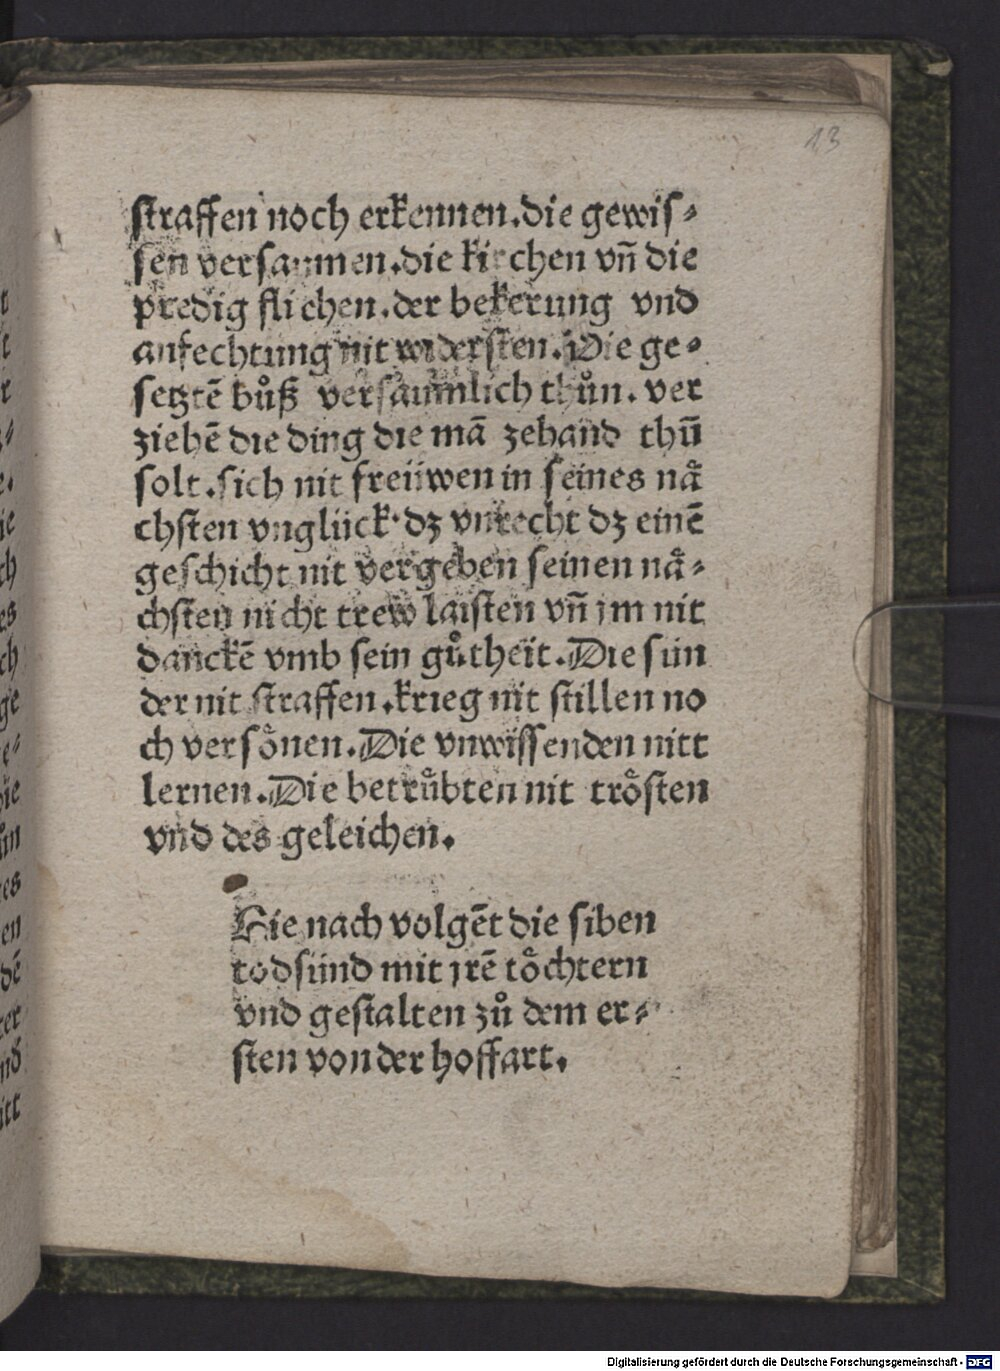 13
straffen noch erkennen.die gewis⸗
sen versaumen.die kirchen vñ die
predig fliehen.der bekerung vnd
anfechtung nit widersten.Die ge⸗
setztē bůß versaumlich thůn. ver
ziehē die ding die mā zehand thū
solt.sich nit freüwen in seines nå
chsten vnglück·dz vnrecht dz einē
geschicht nit vergeben seinen nå⸗
chsten nicht trew laisten vñ jm nit
danckē vmb sein gůtheit.Die sün
der nit straffen.krieg nit stillen no
ch versönen.Die vnwissenden nitt
lernen.Die betrůbten nit trösten
vnd des geleichen.
Hie nach volgēt die siben
todsünd mit jrē töchtern
vnd gestalten zů dem er⸗
sten von der hoffart.
Digitalisierung gefördert durch die Deutsche Forschungsgemeinschaft - DFG